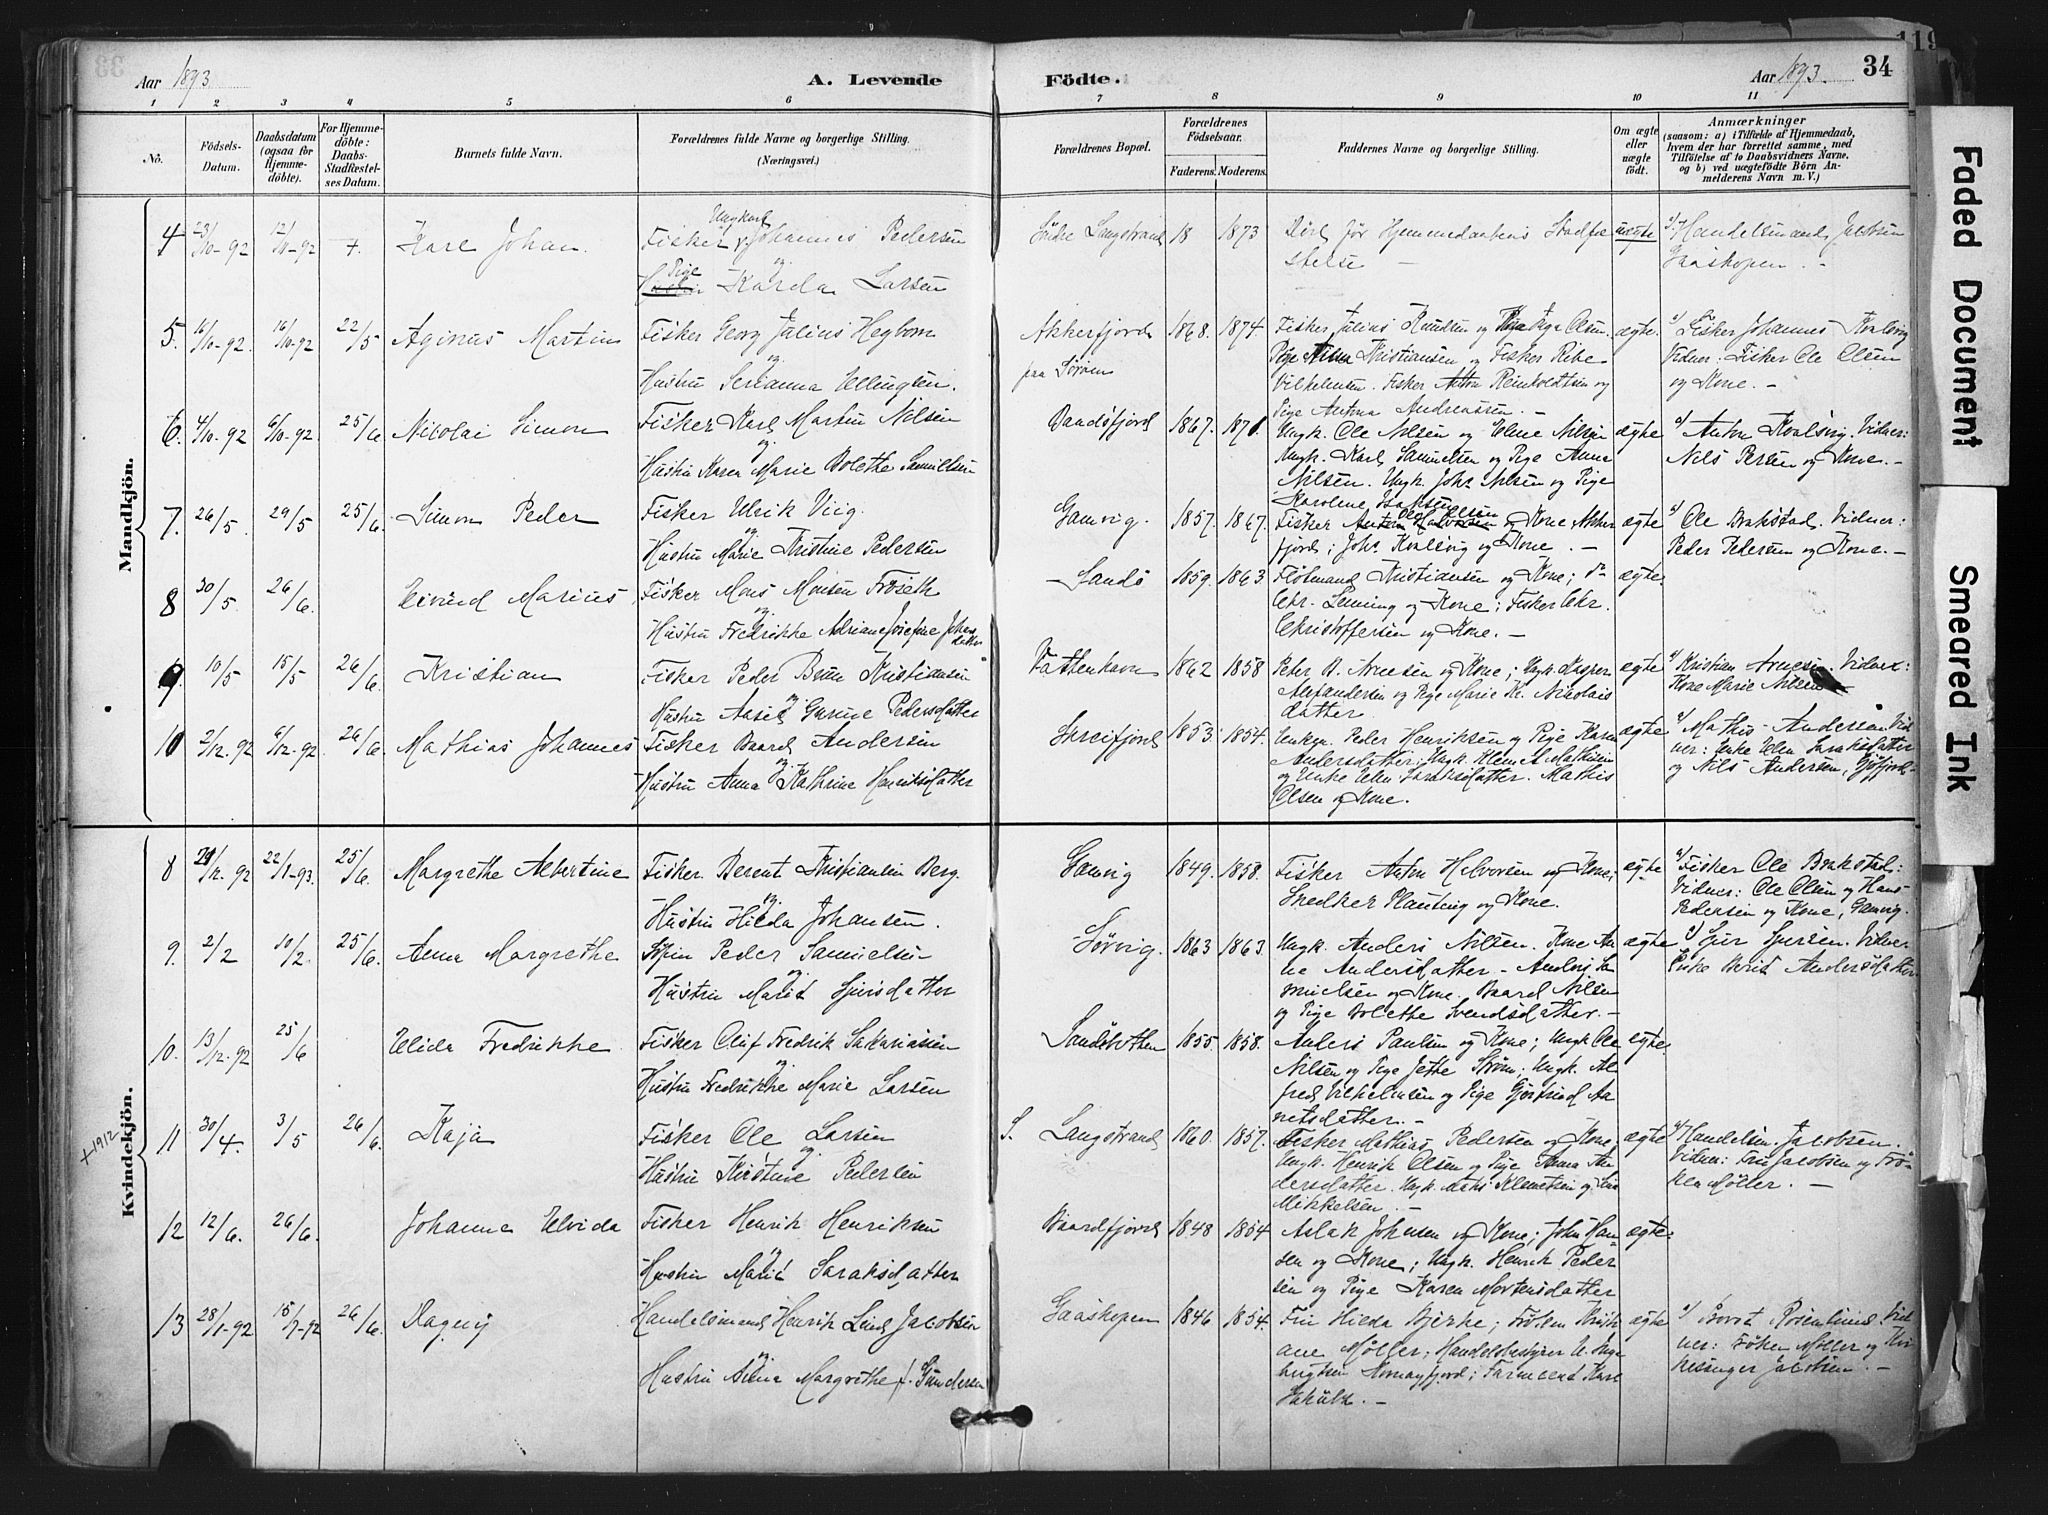 119
Aar 1893. A. Levende Födte. Aar 1893. 34
1 2 3 4 5 6 7 8 9 10 11
No.
Födsels-Datum.
Daabsdatum (ogsaa for Hjemmedöbte).
For Hjemmedöbte: Daabs-Stadfæstelses Datum.
Barnets fulde Navn.
Forældrenes fulde Navne og borgerlige Stilling. (Næringsvei.)
Forældrenes Bopæl.
Forældrenes Födselsaar.
Faderens. Moderens.
Faddernes Navne og borgerlige Stilling.
Om ægte eller uægte födt.
Anmærkninger
(saasom: a) i Tilfælde af Hjemmedaab, hvem der har forrettet samme, med Tilföielse af to Daabsvidners Navne, og b) ved uægtefödte Börn Anmelderens Navn m. V.)
Mandkjön.
4 23/10-92 12/11-92 +. Kare Johan. Fisker Ungkarl Johannes Pedersen
og Pige Karda Larsen
Söndre Langstrand 18 1873 Död för Hjemmedaabens Stadfæ
stelse —
uægte
a/ Handelsmand Jacobsen
Gaaskopen. -
5. 16/10-92. 16/10-92 22/5 Aginus Martin Fisker Georg Julius Hegborn
og
Hustru Serianna Ellingsen.
Akkerfjord
paa Sörøen
1868. 1874. Fisker Julius Knudsen og Pige Inga Olsen.
Pige Alma Kristiansen og Fisker Ribe
Vilhelmsen. Fisker Anton Reinholdtsen og
Pige Antona Andreassen. —
ægte.
a/ Fisker Johannes Kvalsvig
Vidner: Fisker Ole Olsen
og Kone. -
6. 4/10-92 6/10-92. 25/6 Nicolai Simon Fisker Karl Martin Nilsen
og
Hustru Karen Marie Bolethe Samuelsen
Baadsfjord 1867. 1871. Ungk. Ole Nilsen og Elene Nilsen
Ungk. Karl Samuelsen og Pige Anna
Nilsen. Ungk. Johs. Nilsen og Pige
Karoline Isaksen
ægte
a/ Anton Kvalsvig. Vidner:
Nils Persen og Kone. -
7. 26/5. 29/5 25/6. Simon Peder Fisker Ulrik Viig.
og
Hustru Marie Kristine Pedersen
Gamvig. 1857. 1867. Fisker Anton Halvorsen og Kone Akker
fjord; Johs. Kvalsvig og Kone. —
ægte
a/ Ole Brakstad. Vidner:
Peder Pedersen og Kone. -
8 30/5. 26/6. Eivind Marius Fisker Mons Monsen Fröseth
og
Hustru Fredrikke Adriane Josefine Johns
datter
Sandö 1859. 1863 Flötmand Kristiansen og Kone;
Chr. Lenning og Kone; Fisker Chr.
Christoffersen og Kone. -
ægte
9. 10/5 15/5 26/6. Kristian Fisker Peder Brun Kristiansen
og
Hustru Aasel Gurine Pedersdatter
Vattenhavn 1862 1858 Peter A. Arnesen og Kone; Ungk. Kasper
Alexandersen og Pige Marie K. Nicolais
datter
ægte
a/ Kristian Arnesen. Vidner:
Kone Marie Nilsen
10 2/12.92 6/12-92 26/6. Mathias Johannes Fisker Baard Andersen
og
Hustru Anna Kathrine Henriksdatter
Skreifjord 1853. 1854. Enkem. Peder Henriksen og Pige Karen
Andersdatter; Ungk. Klem. A. Mathisen
og Enke Elen Saraksdatter. Mathis
Olsen og Kone.
ægte
a/ Mathis Andersen. Vid
ner: Enke Elen Saraksdatter
og Nils Andersen, Gåsfjord-
Kvindekjön.
8 29/12.92 22/1-93. 25/6. Margrethe Albertine Fisker Berent Kristiansen Berg.
og
Hustru Hilda Johansen.
Gamvig 1849. 1858. Fisker Anton Halvorsen og Kone;
Snedker Plauting og Kone.
ægte
a/ Fisker Ole Brakstad;
Vidner: Ole Olsen og Hans
Pedersen og Kone, Gamvig.
9. 2/2 10/2 25/6. Anna Margrethe Peder Samuelsen
og
Hustru Marit Sjursdatter
Sörvig. 1863 1863. Ungk. Anders Nilsen. Kone An
ne Andersdatter - Anders Sa
muelsen og Kone. Baard Nilsen
og Pige Bolette Svendsdatter. -
ægte
a/ Sjur Sjursen. Vidner
Enke Berit Andersdatter
10. 13/12.92 25/6 Elida Fredrikke Fisker Oluf Fredrik Sakariasen
og
Hustru Fredrikke Marie Larsen
Sandöbotten 1855. 1858. Anders Paulsen og Kone; Ungk Ole
Nilsen og Pige Jette Ström; Ungk. Al
fred Vilhelmsen og Pige Gjertrud An
netsdatter. -
ægte
+1912 11 30/4. 3/5 26/6. Kaja Fisker Ole Larsen
og
Hustru Kirstine Pedersen
S. Langstrand 1860. 1857. Fisker Mathias Pedersen og Kone;
Ungk. Henrik Olsen og Pige Anna An
dersdatter. Ungk. Mats Klemetsen og
Mikkelsen. -
ægte
a/ Handelsm. Jacobsen.
Vidner: Fru Jacobsen og Frö-
ken Möller. -
12 12/6. 26/6. Johanna Elvida Fisker Henrik Henriksen
og
Hustru Marit Saraksdatter
Baardfjord 1848 1854 Aslak Johnsen og Kone; John Han-
sen og Kone; Ungk. Henrik Peder
sen og Pige Karen Mortensdatter
ægte:
13 28/1-92 15/7-92 26/6. Dagny Handelsmand Henrik Lund Jacobsen
og
Hustru Alma Margrethe f. Gundersen
Gaaskopen 1846 1854. Fru Hilda Bjerke; Fröken Kristi
ane Möller; Handelsbestyrer U. Inge
brigtsen Kornayfjord; Farmaceut Karl
Sakulth. -
ægte
a/ Berret Rosenlund. Vid
ner: Fröken Möller og Kir
kesanger Jacobsen. -
Faded Document
Smeared Ink